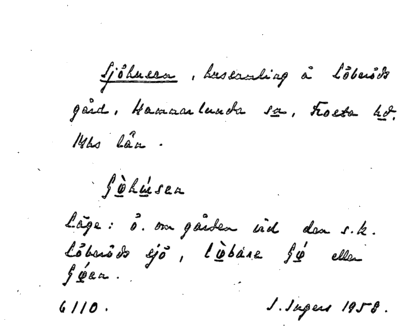 Sjöhusen, hussamling å Löberöds
gård, Hammarlunda sn, Frosta hd,
Mhs län.
Sø̀húsen
Läge: ö. om gården vid den s.k.
Löberöds sjö, lø̀bäre Sǿ eller
Sǿen.
6110. I. Ingers 1958.